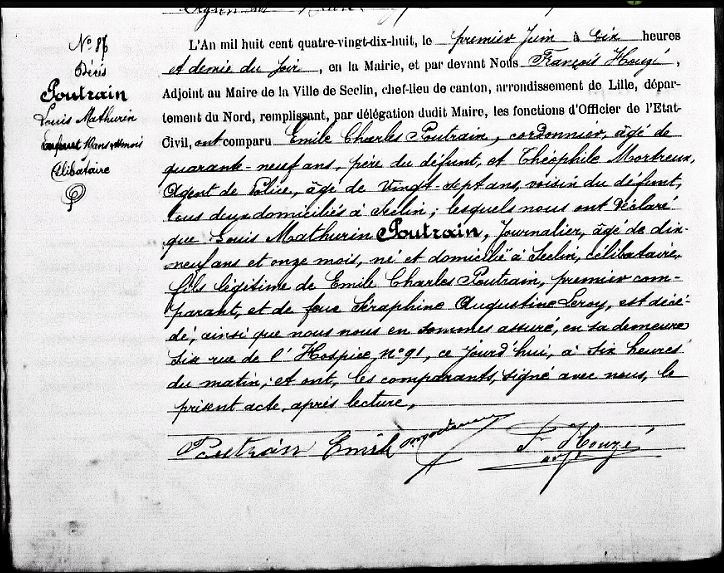 N° 86
Décès
Poutrain
Louis Mathurin
19 ans 11 mois
Célibataire
L'An mil huit cent quatre-vingt-dix-huit, le premier Juin à six heures
et demie du soir, en la Mairie, et par devant Nous François Houzé,
Adjoint au Maire de la Ville de Seclin, chef-lieu de canton, arrondissement de Lille, dépar-
tement du Nord, remplissant, par délégation dudit Maire, les fonctions d'Officier de l'Etat-
Civil, ont comparu Emile Charles Poutrain, cordonnier, âgé de
quarante-neuf ans, père du défunt, et Théophile Mortreux,
Agent de Police, âgé de vingt-sept ans, voisin du défunt,
tous deux domiciliés à Seclin; lesquels nous ont déclaré
que Louis Mathurin Poutrain, Journalier, âgé de dix-
neuf ans et onze mois, né et domicilié à Seclin, célibataire,
fils légitime de Emile Charles Poutrain, premier com-
parant, et de feue Séraphine Augustine Leroy, est décé-
dé, ainsi que nous nous en sommes assuré, en sa demeure
sise rue de l'Hospice, n° 91, ce jourd'hui, à six heures
du matin; et ont, les comparants, signé avec nous, le
présent acte, après lecture,
Poutrain Emile Mortreux F. Houzé